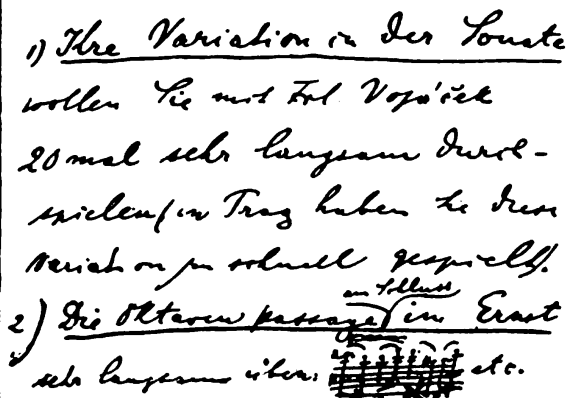 1) Ihre Variation in der Sonate
wollen Sie mit Frl Vojáček
20 mal sehr langsam durch-
spielen (in Prag haben Sie diese
Variation zu schnell gespielt).
am Schluss
2) Die Oktaven passage im Ernst
sehr langsam üben: etc.